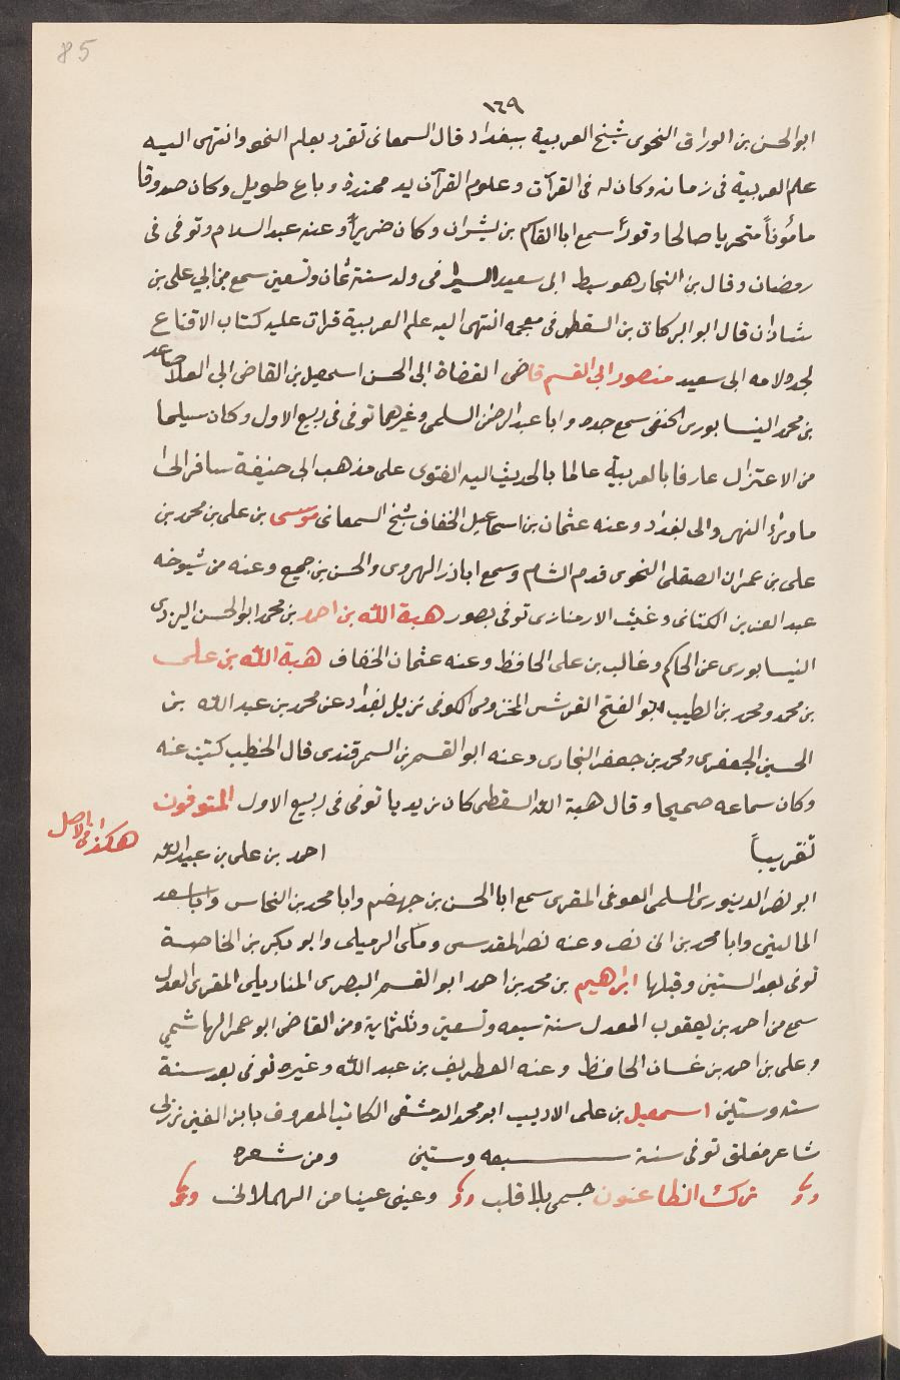 85
١٦٩
ابو الحسن بن الوراق النحوى شيخ العربية ببغداد قال السمعانى تفرد بعلم النحو وانتهى اليه
علم العربية فى زمانه وكان له فى القرآن وعلوم القرآن يد ممتدة وباع طويل وكان صدوقا
مأموناً متحريا صالحا وقورا سمع ابا القاسم بن بشران وكان ضريرا وعنه عبد السلام وتوفى فى
رمضان وقال بن النجار هو سبط ابى سعيد السيرافى ولد سنة ثمان وتسعين سمع من ابى على بن
شاذان قال ابو البركات بن السقطى فى معجمه انتهى اليه علم العربية قرات عليه كتاب الاقناع
لجده لامه ابى سعيد منصور ابى القسم قاضى القضاة ابى الحسن اسمعيل بن القاضى ابى العلا صاعد
بن محمد النيسابورى الحنفى سمع جده وابا عبد الرحمن السلمى وغيرهما توفى فى ربيع الاول وكان سليما
من الاعتزال عارفا بالعربية عالما بالحديث اليه الفتوى على مذهب ابى حنيفة سافر الى
ما وراء النهر والى بغداد وعنه عثمان بن اسماعيل الخفاف شيخ السمعانى موسى بن على بن محمد بن
على بن عمران الصقلى النحوى قدم الشام وسمع اباذر الهروى والحسن بن جميع وعنه من شيوخه
عبد العزيز الكتانى وغيث الارمنازى توفى بصور هبة الله بن احمد بن محمد ابو الحسن اليزدى
النيسابورى عن الحاكم وغالب بن على الحافظ وعنه عثمان الخفاف هبة الله بن على
بن محمد ومحمد بن الطيب ابو الفتح القرشى المخزومى الكوفى نزيل بغداد عن محمد بن عبد الله بن
الحسين الجعفرى ومحمد بن جعفر النجارى وعنه ابو القسم بن السمرقندى قال الخطيب كتبت عنه
وكان سماعه صحيحا وقال هبة الله السقطى كان زيديا توفى فى ربيع الاول المتوفون
هكذا فى الاصل
تقريباً احمد بن على بن عبيد الله
ابو نصر الدينورى السلمى الصوفى المقرى سمع ابا الحسن بن جهضم وابا محمد بن النحاس وابا سعد
المالينى وابا محمد بن ابى نصر وعنه نصر المقدسى ومكى الرميلى وابو بكر بن الخاضبة
توفى بعد الستين وقبلها ابراهيم بن محمد بن احمد ابو القسم البصرى المناديلى المقرى العدل
سمع من احمد بن يعقوب المعدل سنة سبعه وتسعين وثلثماية ومن القاضى ابو عمر الهاشمى
وعلى بن احمد بن غسان الحافظ وعنه الغطريف بن عبد الله وغيره توفى بعد سنة
سته وستين اسمعيل بن على الاديب ابو محمد الدمشقى الكاتب المعروف بابن العين زربى
شاعر مفلق توفى سنة سبعه وستين ومن شعره
ترك الظاعنون جسمى بلا قلب وعينى عينا من الهملان